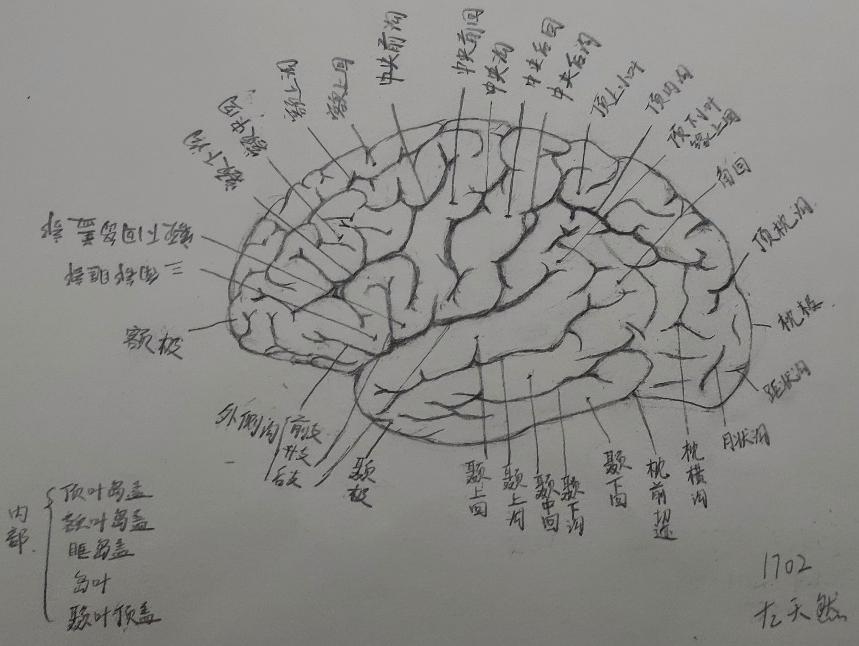 中央前沟
中央前回
中央沟
中央后回
中央后沟
顶上小叶
顶内沟
顶下小叶
缘上回
角回
顶枕沟
枕极
距状沟
月状沟
枕横沟
枕前切迹
颞下回
颞下沟
颞中回
颞上沟
颞上回
颞极
外侧沟
前支
升支
后支
额极
三角部 眶部
额下回岛盖部
额下沟
额中回
额上沟
额上回
内部
顶叶岛盖
额叶岛盖
眶岛盖
岛叶
颞叶顶盖
1702
左天然